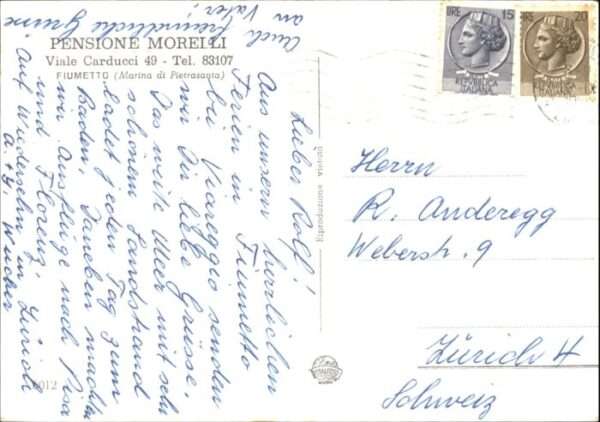 PENSIONE MORELLI
Viale Carducci 49 - Tel. 83107
FIUMETTO (Marina di Pietrasanta)
Auch freundliche Grüsse
an Vater!
Lieber Rolf!
Aus unsern herrlichen
Ferien in Fiumetto
bei Viareggio senden
wir Dir liebe Grüsse.
Das weite Meer mit sehr
schönem Sandstrand
ladet jeden Tag zum
Baden. Daneben machten
wir Ausflüge nach Pisa
und Florenz.
Auf Wiedersehn in Zürich
A. + G.
Riproduzione vietata
LIRE 15
REPVBBLICA
ITALIANA
LIRE 20
REPVBBLICA
ITALIANA
Herrn
R. Anderegg
Weberstr. 9
Zürich 4
Schweiz
6012